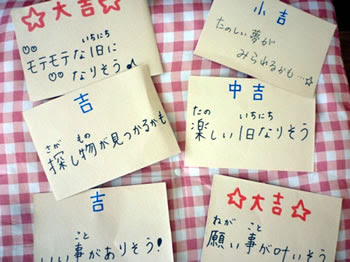 ☆大吉☆
いちにち
モテモテな1日に
なりそう♪
小吉
たのしい夢が
みられるかも…☆
吉
さが もの
探し物が見つかるかも
中吉
たの いちにち
楽しい1日なりそう
吉
こと
いい事がありそう!
☆大吉☆
ねが ごと かな
願い事が叶いそう